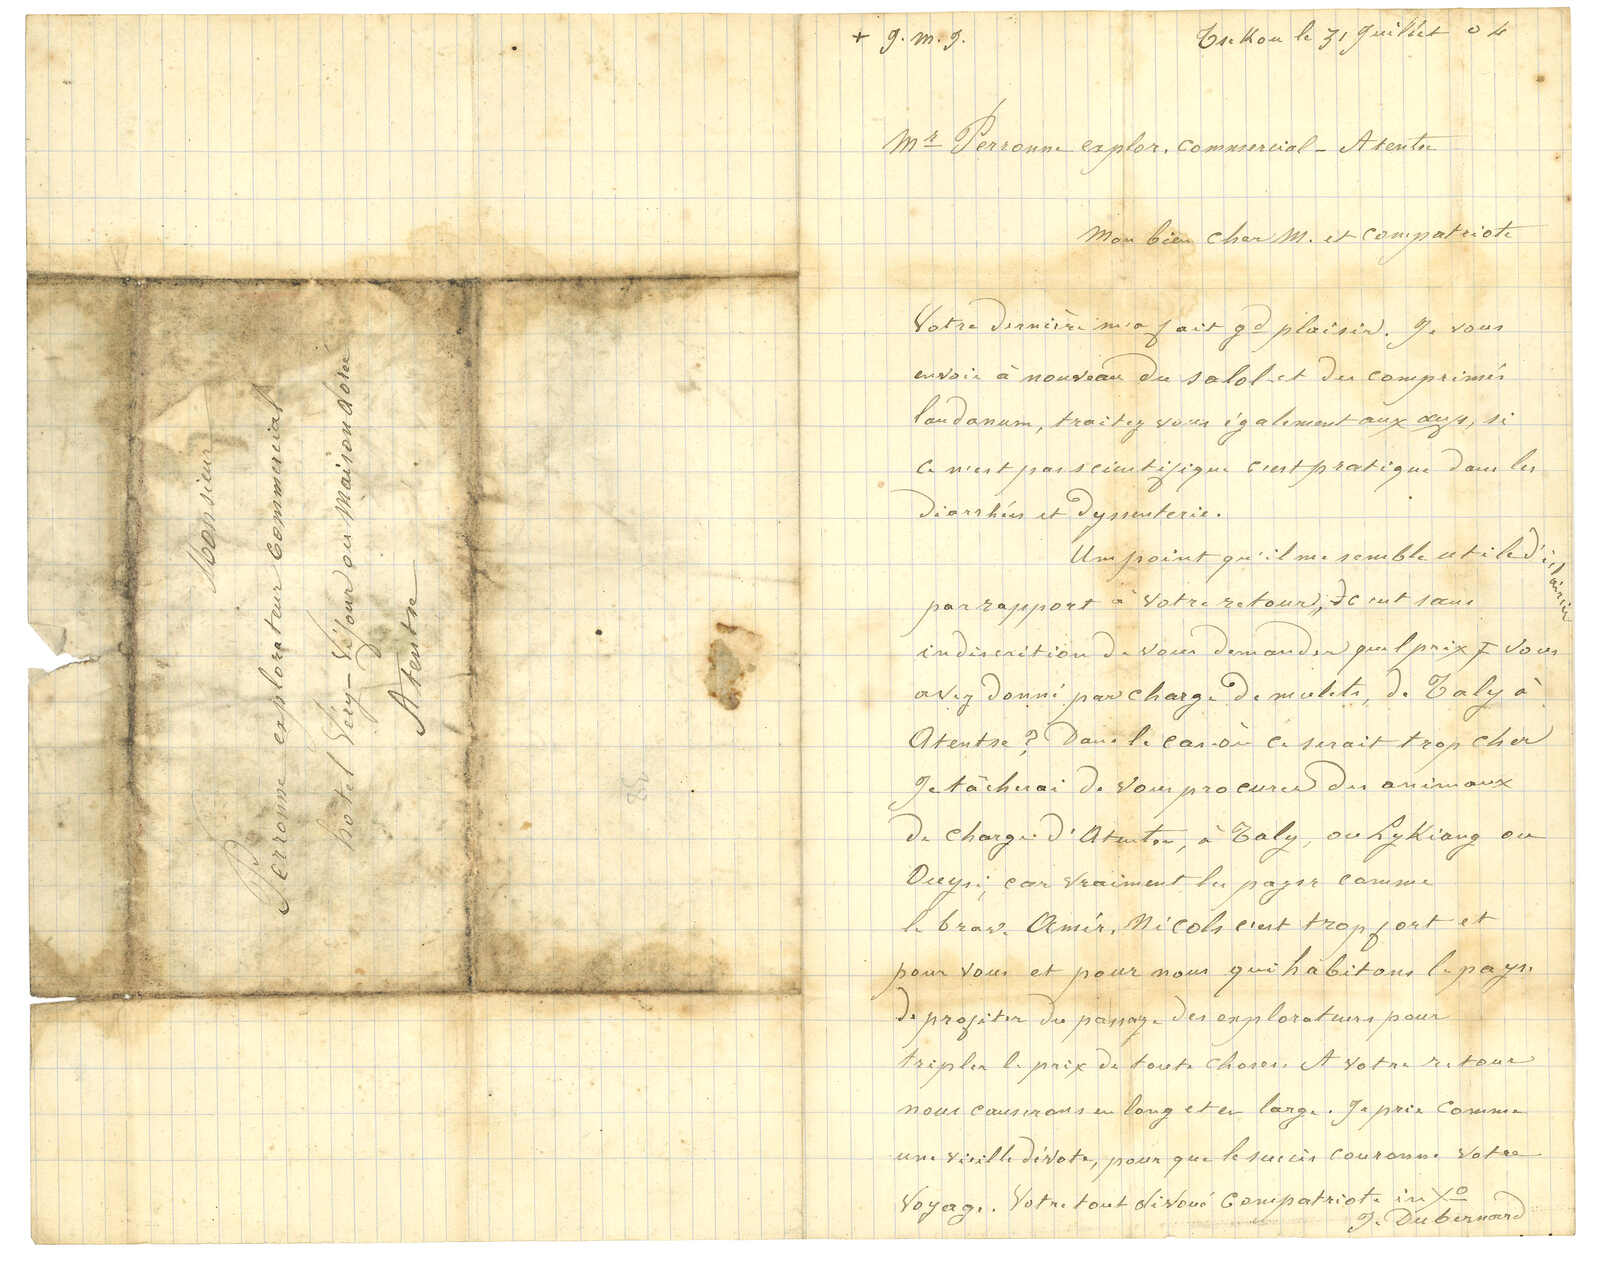 Monsieur
Perronne explorateur commercial
hotel Véry-Séjour ou Maison dorée
Atentse
+ J. M. J.
Tsekou le 31 Juillet 04
Mr Perronne explor. commercial - Atentse
Mon bien cher M. et compatriote
Votre dernière m'a fait gd plaisir. Je vous
envoie à nouveau du salol et des comprimés
laudanum, traitez vous également aux œufs, si
ce n'est pas scientifique c'est pratique dans les
diarrhées et dyssenterie.
Un point qu'il me semble utile d'éclaircir
par rapport à votre retour, c'est sans
indiscrétion de vous demander quel prix vous
avez donné par charge de mulets, de Taly à
Atentse? Dans le cas où ce serait trop cher
Je tâcherai de vous procurer des animaux
de charge d'Atentse, à Taly, ou Lykiang ou
Oueysi, car vraiment les payer comme
le brave Amér. Nicols c'est trop fort et
pour vous et pour nous qui habitons le pays.
de profiter du passage des explorateurs pour
tripler le prix de toute choses. A votre retour
nous causerons en long et en large. Je prie comme
une vieille dévote, pour que le succès couronne votre
voyage. Votre tout dévoué compatriote in Xo
J. Dubernard